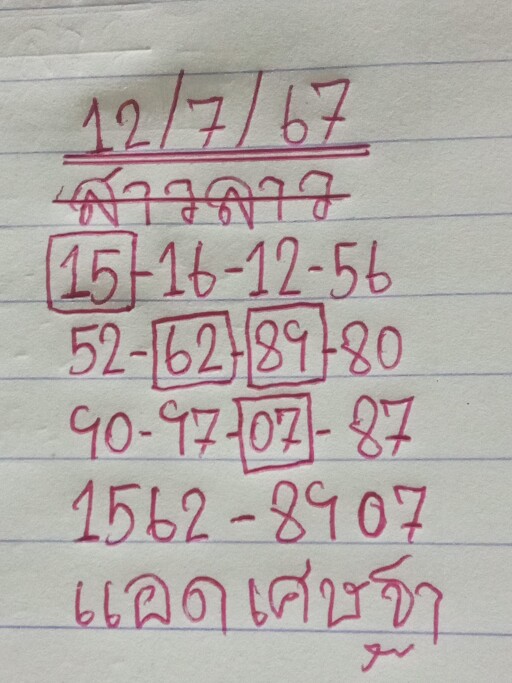 12/7/67
สาวลาว
15-16-12-56
52-62-89-80
90-97-07-87
1562-8907
แอดเศษฐี